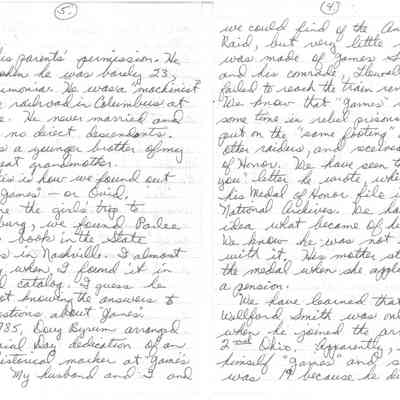 5.
his parents' permission. He
when he was barely 23,
He was a "machinist"
railroad in Columbus at
He never married and
no direct descendants.
s a younger brother of my
great grandmother.
is is how we found out
"James" - or Ovid,
the girls' trip to
burg, we found Parlee
book in the State
s in Nashville. I almost
when I found it in
d catalog. I guess he
knowing the answers to
estions about James.
985, Doug Byrum arranged
rial Day dedication of an
historical marker at James
My husband and I and
(4.)
we could find of the An
Raid, but very little
was made of James &
and his comrade, Llewel
failed to reach the train ren
We know that "James"
some time in rebel prisons
put on the "same footing"
other raiders, and received
of Honor. We have seen t
you" letter he wrote, whe
his Medal of Honor file i
National Archives. We ha
idea what became of he
We know he was not
with it. His mother st
the medal when she appli
a pension.
We have learned that
Wellford Smith was onl
when he joined the ar
2nd Ohio. Apparently,
himself "James" and s
was 19 because he di